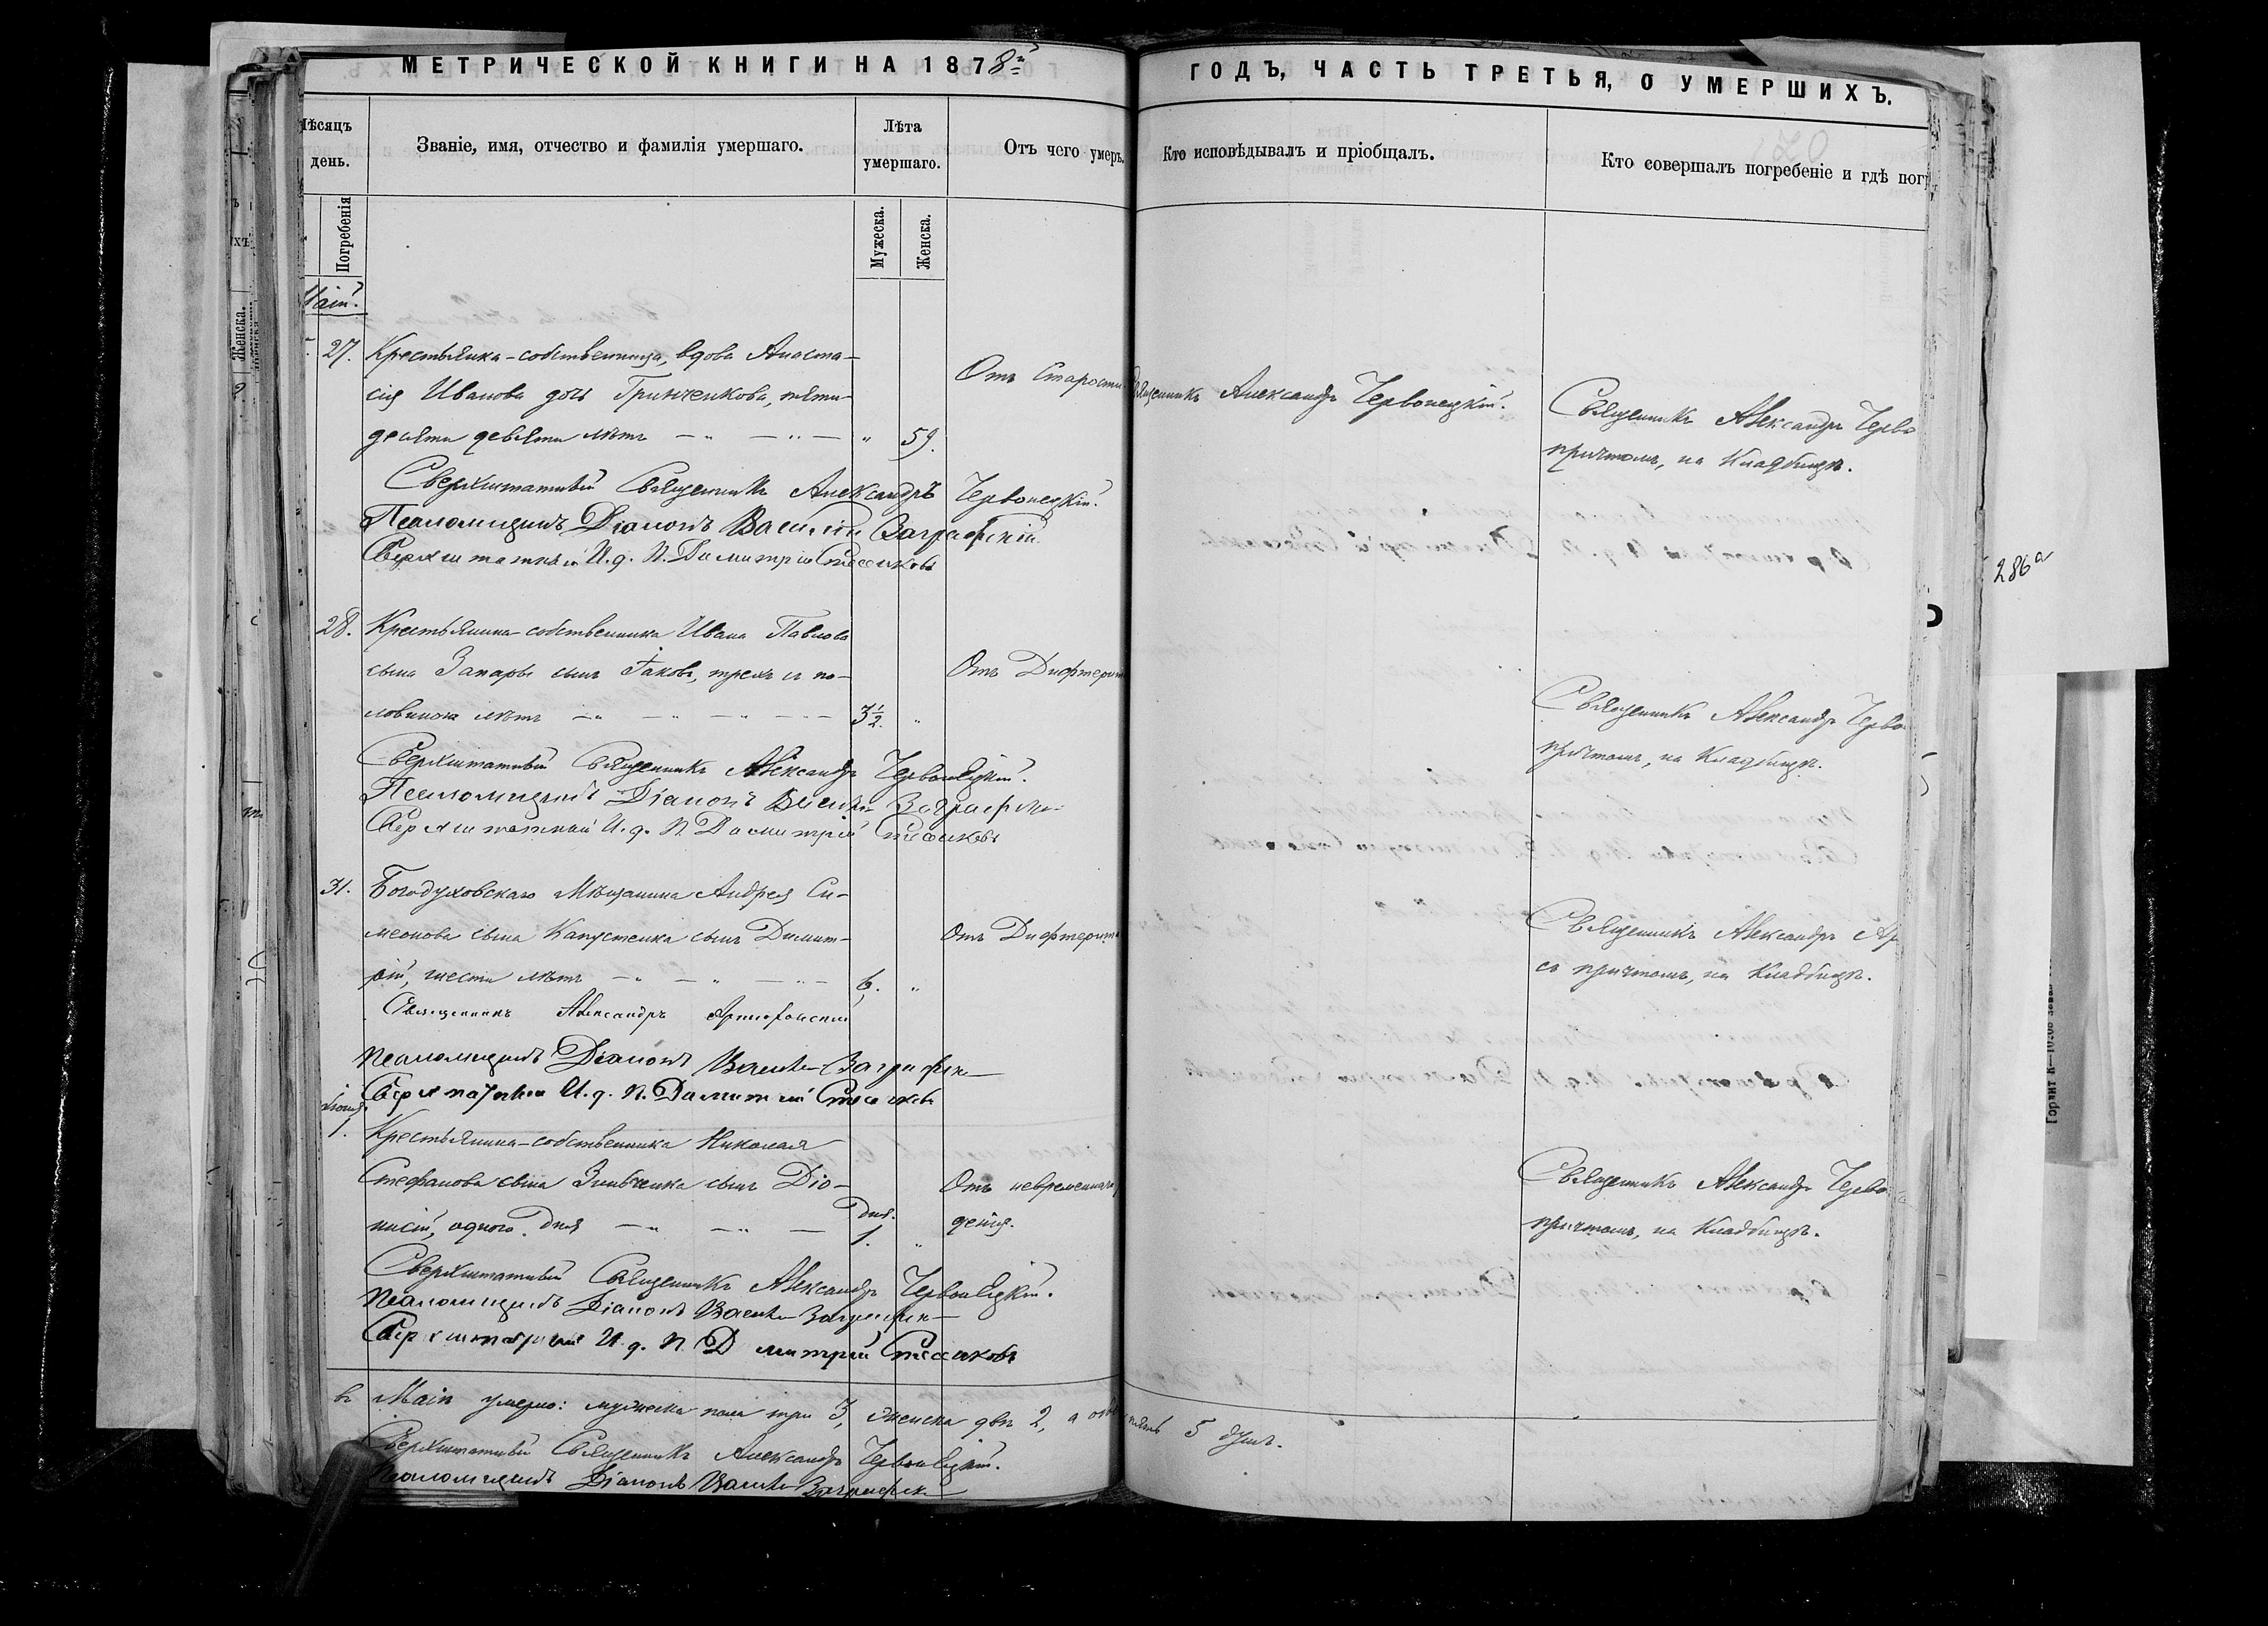 МЕТРИЧЕСКОЙ КНИГИ НА 1878й
ГОДЪ, ЧАСТЬ ТРЕТЬЯ, О УМЕРШИХЪ.
Мѣсяцъ
день.
Званіе, имя, отчество и фамилія умершаго.
Лѣта
умершаго.
Отъ чего умеръ.
Кто исповѣдывалъ и пріобщалъ.
Кто совершалъ погребеніе и гдѣ пог
Погребенія
Мужеска.
Женска.
Маій.
27. Крестьянка-собственница, вдова Анаста-
сія Иванова дочь Гринченкова, пяти-
десяти девяти лѣтъ — " — " — " 59.
Отъ Старости
Священникъ Александръ Червонецкій.
Священникъ Александръ Черво
причтомъ, на Кладбищѣ.
Сверхштатный Священникъ Александръ Червонецкій.
Псаломщикъ Діаконъ Василій Заграфскій
Сверхштатный И. д. П. Димитрій
28. Крестьянина-собственника Ивана Павлова
сына Запары сынъ Іаковъ, трехъ съ по-
ловиною лѣтъ — " — " — " — 3½. "
Отъ Дифтерита
Священникъ Александръ Черво
причтомъ, на Кладбищѣ.
Сверхштатный Священникъ Александръ Червонецкій.
Псаломщикъ Діаконъ Василій
Сверхштатный И. д. П. Димитрій
31. Богодуховскаго Мѣщанина Андрея Си-
меонова сына Капустенка сынъ Димит-
рій, шести лѣтъ — " — " — " — 6. "
Отъ Дифтерита
Священникъ Александръ Ар
съ причтомъ, на Кладбищѣ.
Священникъ Александръ
Псаломщикъ Діаконъ Василій
Сверхштатный И. д. П. Димитрій
Іюня
1. Крестьянина-собственника Николая
Стефанова сына Зинченка сынъ Діо-
нисій, одного дня — " — " — Дня. 1. "
Отъ невременнаго
денія.
Священникъ Александръ Черво
причтомъ, на Кладбищѣ.
Сверхштатный Священникъ Александръ Червонецкій.
Псаломщикъ Діаконъ Василій
Сверхштатный И. д. П. Димитрій
въ Маіѣ умерло: мужеска пола три 3, женска двѣ 2, а обоего пять 5 душъ.
Сверхштатный Священникъ Александръ Червонецкій.
Псаломщикъ Діаконъ Василій
286а